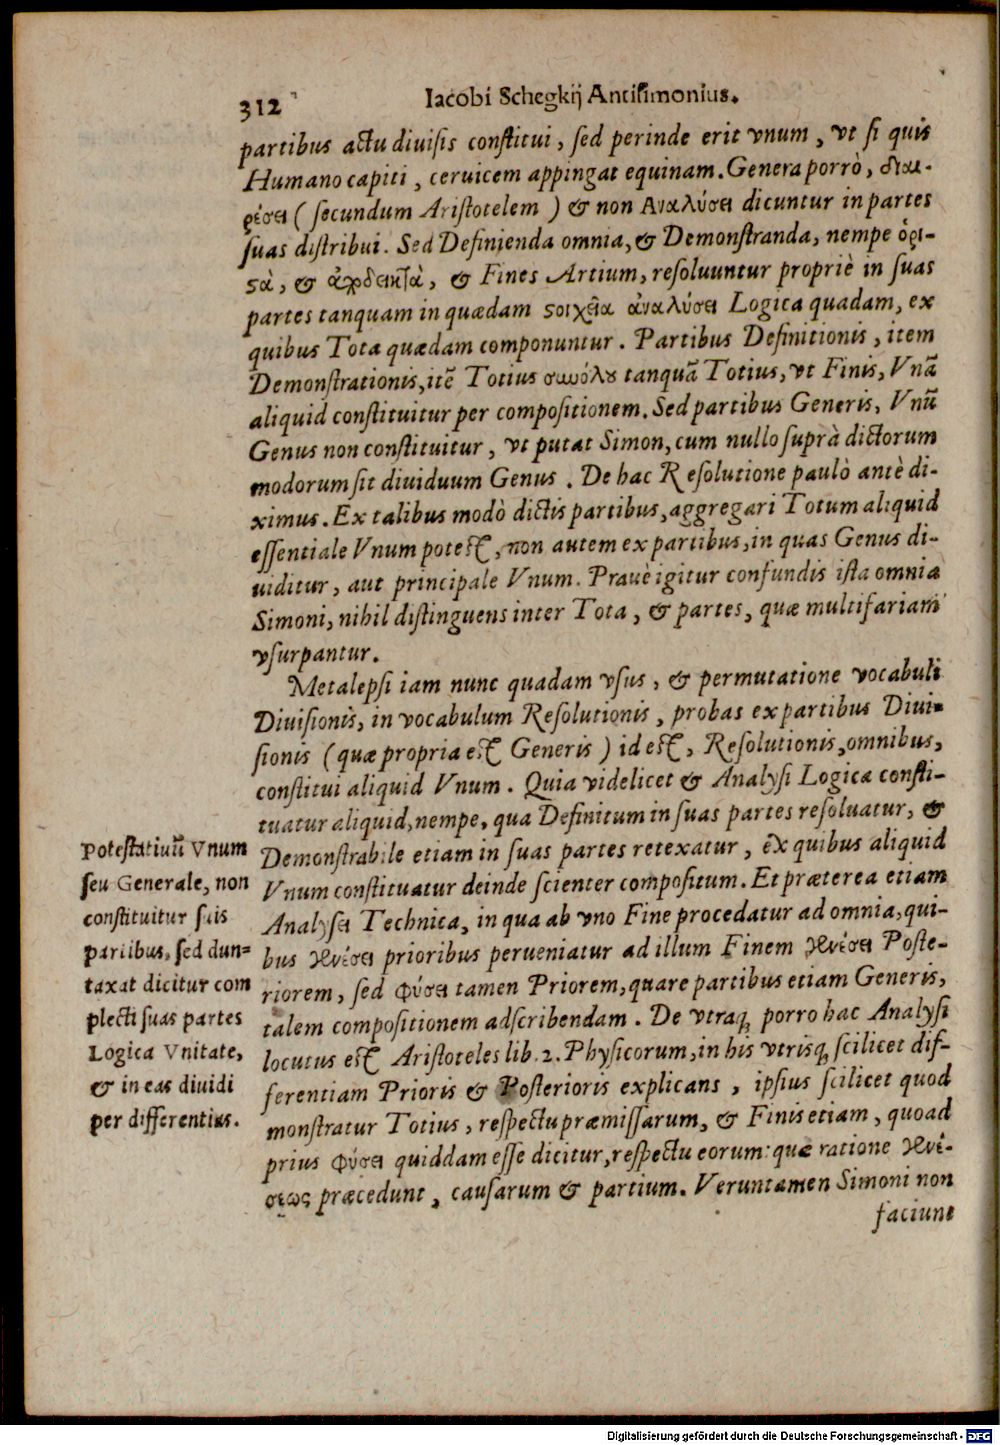 312
Iacobi Schegkij Antisimonius.
partibus actu diuisis constitui, sed perinde erit vnum, vt si quis
Humano capiti, ceruicem appingat equinam. Genera porrò, διαι-
ρέσει (secundum Aristotelem) & non Αναλύσει dicuntur in partes
suas distribui. Sed Definienda omnia, & Demonstranda, nempe ὁρι-
ϛὰ, & & Fines Artium, resoluuntur propriè in suas
partes tanquam in quædam ϛοιχεῖα ἀναλύσει Logica quadam, ex
quibus Tota quædam componuntur. Partibus Definitionis, item
Demonstrationis, itē Totius συνόλου tanquā Totius, vt Finis, Vnā
aliquid constituitur per compositionem. Sed partibus Generis, Vnū
Genus non constituitur, vt putat Simon, cum nullo suprà dictorum
modorum sit diuiduum Genus. De hac Resolutione paulò antè di-
ximus. Ex talibus modò dictis partibus, aggregari Totum aliquid
essentiale Vnum potest, non autem ex partibus, in quas Genus di-
uiditur, aut principale Vnum. Prauè igitur confundis ista omnia
Simoni, nihil distinguens inter Tota, & partes, quæ multifariam
vsurpantur.
Metalepsi iam nunc quadam vsus, & permutatione vocabuli
Diuisionis, in vocabulum Resolutionis, probas ex partibus Diui-
sionis (quæ propria est Generis) id est, Resolutionis, omnibus,
constitui aliquid Vnum. Quia videlicet & Analysi Logica consti-
tuatur aliquid, nempe, qua Definitum in suas partes resoluatur, &
Demonstrabile etiam in suas partes retexatur, ex quibus aliquid
Vnum constituatur deinde scienter compositum. Et præterea etiam
Analysει Technica, in qua ab vno Fine procedatur ad omnia, qui-
bus γενέσει prioribus perueniatur ad illum Finem γενέσει Poste-
riorem, sed φύσει tamen Priorem, quare partibus etiam Generis,
talem compositionem adscribendam. De vtraq; porro hac Analysi
locutus est Aristoteles lib. 2. Physicorum, in his vtrisq; scilicet dif-
ferentiam Prioris & Posterioris explicans, ipsius scilicet quod
monstratur Totius, respectu præmissarum, & Finis etiam, quoad
prius φύσει quiddam esse dicitur, respectu eorum: quæ ratione γενέ-
σεως præcedunt, causarum & partium. Veruntamen Simoni non
faciunt
Potestatiuū Vnum
seu Generale, non
constituitur suis
partibus, sed dun=
taxat dicitur com
plecti suas partes
Logica Vnitate,
& in eas diuidi
per differentias.
Digitalisierung gefördert durch die Deutsche Forschungsgemeinschaft - DFG